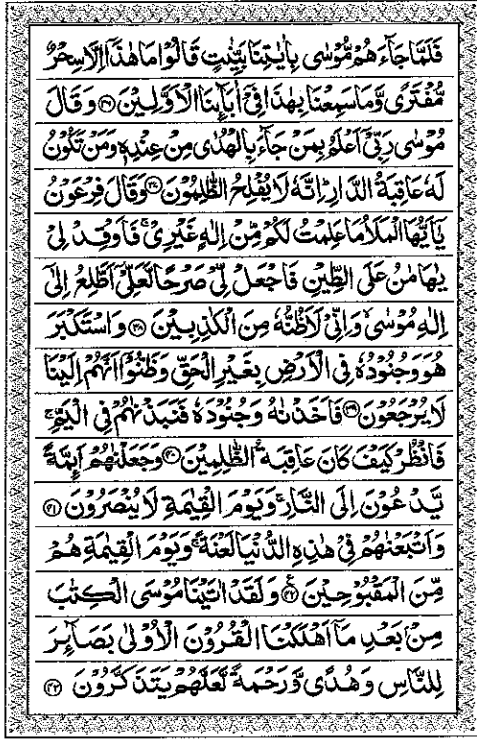 فَلَمَّا جَآءَهُمْ مُّوْسٰى بِاٰيٰتِنَا بَيِّنٰتٍ قَالُوْا مَا هٰذَآ اِلَّا سِحْرٌ
مُّفْتَرًى وَّمَا سَمِعْنَا بِهٰذَا فِيْٓ اٰبَآئِنَا الْاَوَّلِيْنَ ﴿۳۶﴾ وَقَالَ
مُوْسٰى رَبِّيْٓ اَعْلَمُ بِمَنْ جَآءَ بِالْهُدٰى مِنْ عِنْدِهٖ وَمَنْ تَكُوْنُ
لَهٗ عَاقِبَةُ الدَّارِ ؕ اِنَّهٗ لَا يُفْلِحُ الظّٰلِمُوْنَ ﴿۳۷﴾ وَقَالَ فِرْعَوْنُ
يٰٓاَيُّهَا الْمَلَاُ مَا عَلِمْتُ لَكُمْ مِّنْ اِلٰهٍ غَيْرِيْ ۚ فَاَوْقِدْ لِيْ
يٰهَامٰنُ عَلَى الطِّيْنِ فَاجْعَلْ لِّيْ صَرْحًا لَّعَلِّيْٓ اَطَّلِعُ اِلٰٓى
اِلٰهِ مُوْسٰى ۙ وَاِنِّيْ لَاَظُنُّهٗ مِنَ الْكٰذِبِيْنَ ﴿۳۸﴾ وَاسْتَكْبَرَ
هُوَ وَجُنُوْدُهٗ فِي الْاَرْضِ بِغَيْرِ الْحَقِّ وَظَنُّوْٓا اَنَّهُمْ اِلَيْنَا
لَا يُرْجَعُوْنَ ﴿۳۹﴾ فَاَخَذْنٰهُ وَجُنُوْدَهٗ فَنَبَذْنٰهُمْ فِي الْيَمِّ ۚ
فَانْظُرْ كَيْفَ كَانَ عَاقِبَةُ الظّٰلِمِيْنَ ﴿۴۰﴾ وَجَعَلْنٰهُمْ اَئِمَّةً
يَّدْعُوْنَ اِلَى النَّارِ ۚ وَيَوْمَ الْقِيٰمَةِ لَا يُنْصَرُوْنَ ﴿۴۱﴾
وَاَتْبَعْنٰهُمْ فِيْ هٰذِهِ الدُّنْيَا لَعْنَةً ۚ وَيَوْمَ الْقِيٰمَةِ هُمْ
مِّنَ الْمَقْبُوْحِيْنَ ﴿۴۲﴾ وَلَقَدْ اٰتَيْنَا مُوْسَى الْكِتٰبَ
مِنْۢ بَعْدِ مَآ اَهْلَكْنَا الْقُرُوْنَ الْاُوْلٰى بَصَآئِرَ
لِلنَّاسِ وَهُدًى وَّرَحْمَةً لَّعَلَّهُمْ يَتَذَكَّرُوْنَ ﴿۴۳﴾